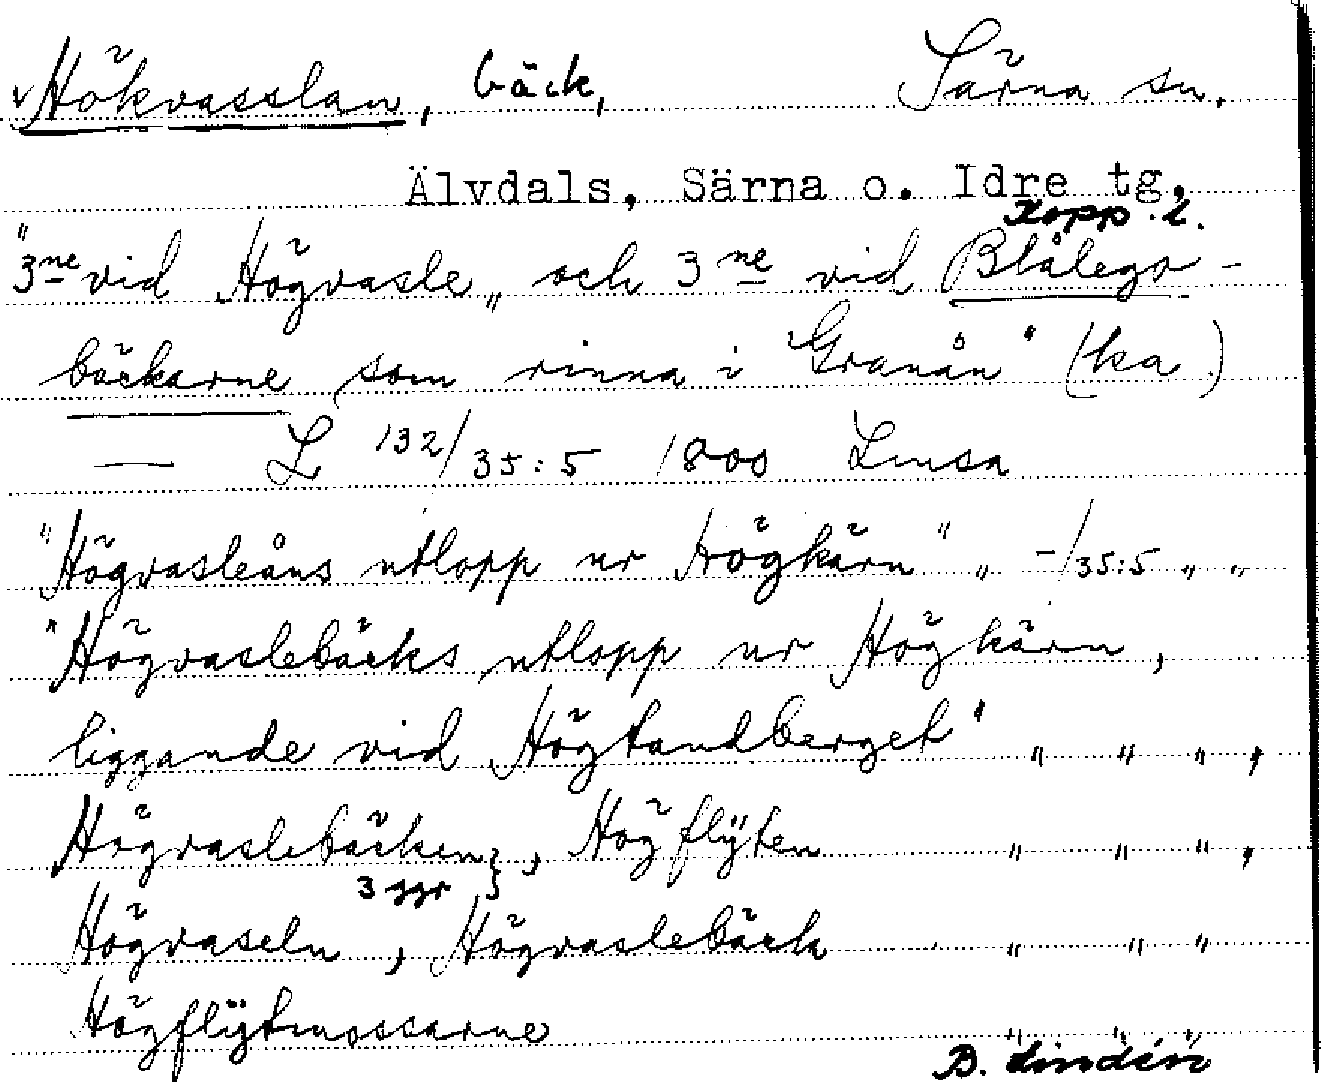 Hökvasslan, bäck, Särna sn.
Älvdals, Särna o. Idre tg,
Kopp. l.
"3ne vid Högvasle„ och 3ne vid Blålego-
bäckarne som rinna i "Granån" (ka.)
— L 132/35:5 1800 Lmsa
"Högvasleåns utlopp ur Högkärn" „ -/35:5 „ „
"Högvaslebäcks utlopp ur Högkärn,
liggande vid Högtandberget" " " " ,
Högvaslebäcken, Högflÿten " " " ,
3 ggr
Högvaseln, Högvaslebäck " " "
Högflÿtmossarne " " "
B. Lindén